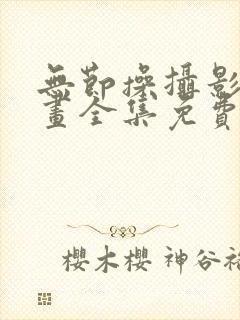 無節操攝影
畫全集免費
櫻木櫻 神谷裕